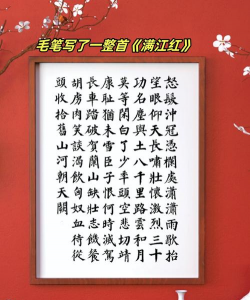 毛笔写了一整首《满江红》
怒髮沖冠憑闌處瀟瀟雨歇抬
望眼仰天長嘯壯懷激烈三十
功名塵與土八千里路雲和月
莫等閑白了少年頭空悲切靖
康耻猶未雪臣子恨何時滅駕
長車踏破賀蘭山缺壯志飢餐
胡虜肉笑談渴飲匈奴血待從
頭收拾舊山河朝天闕